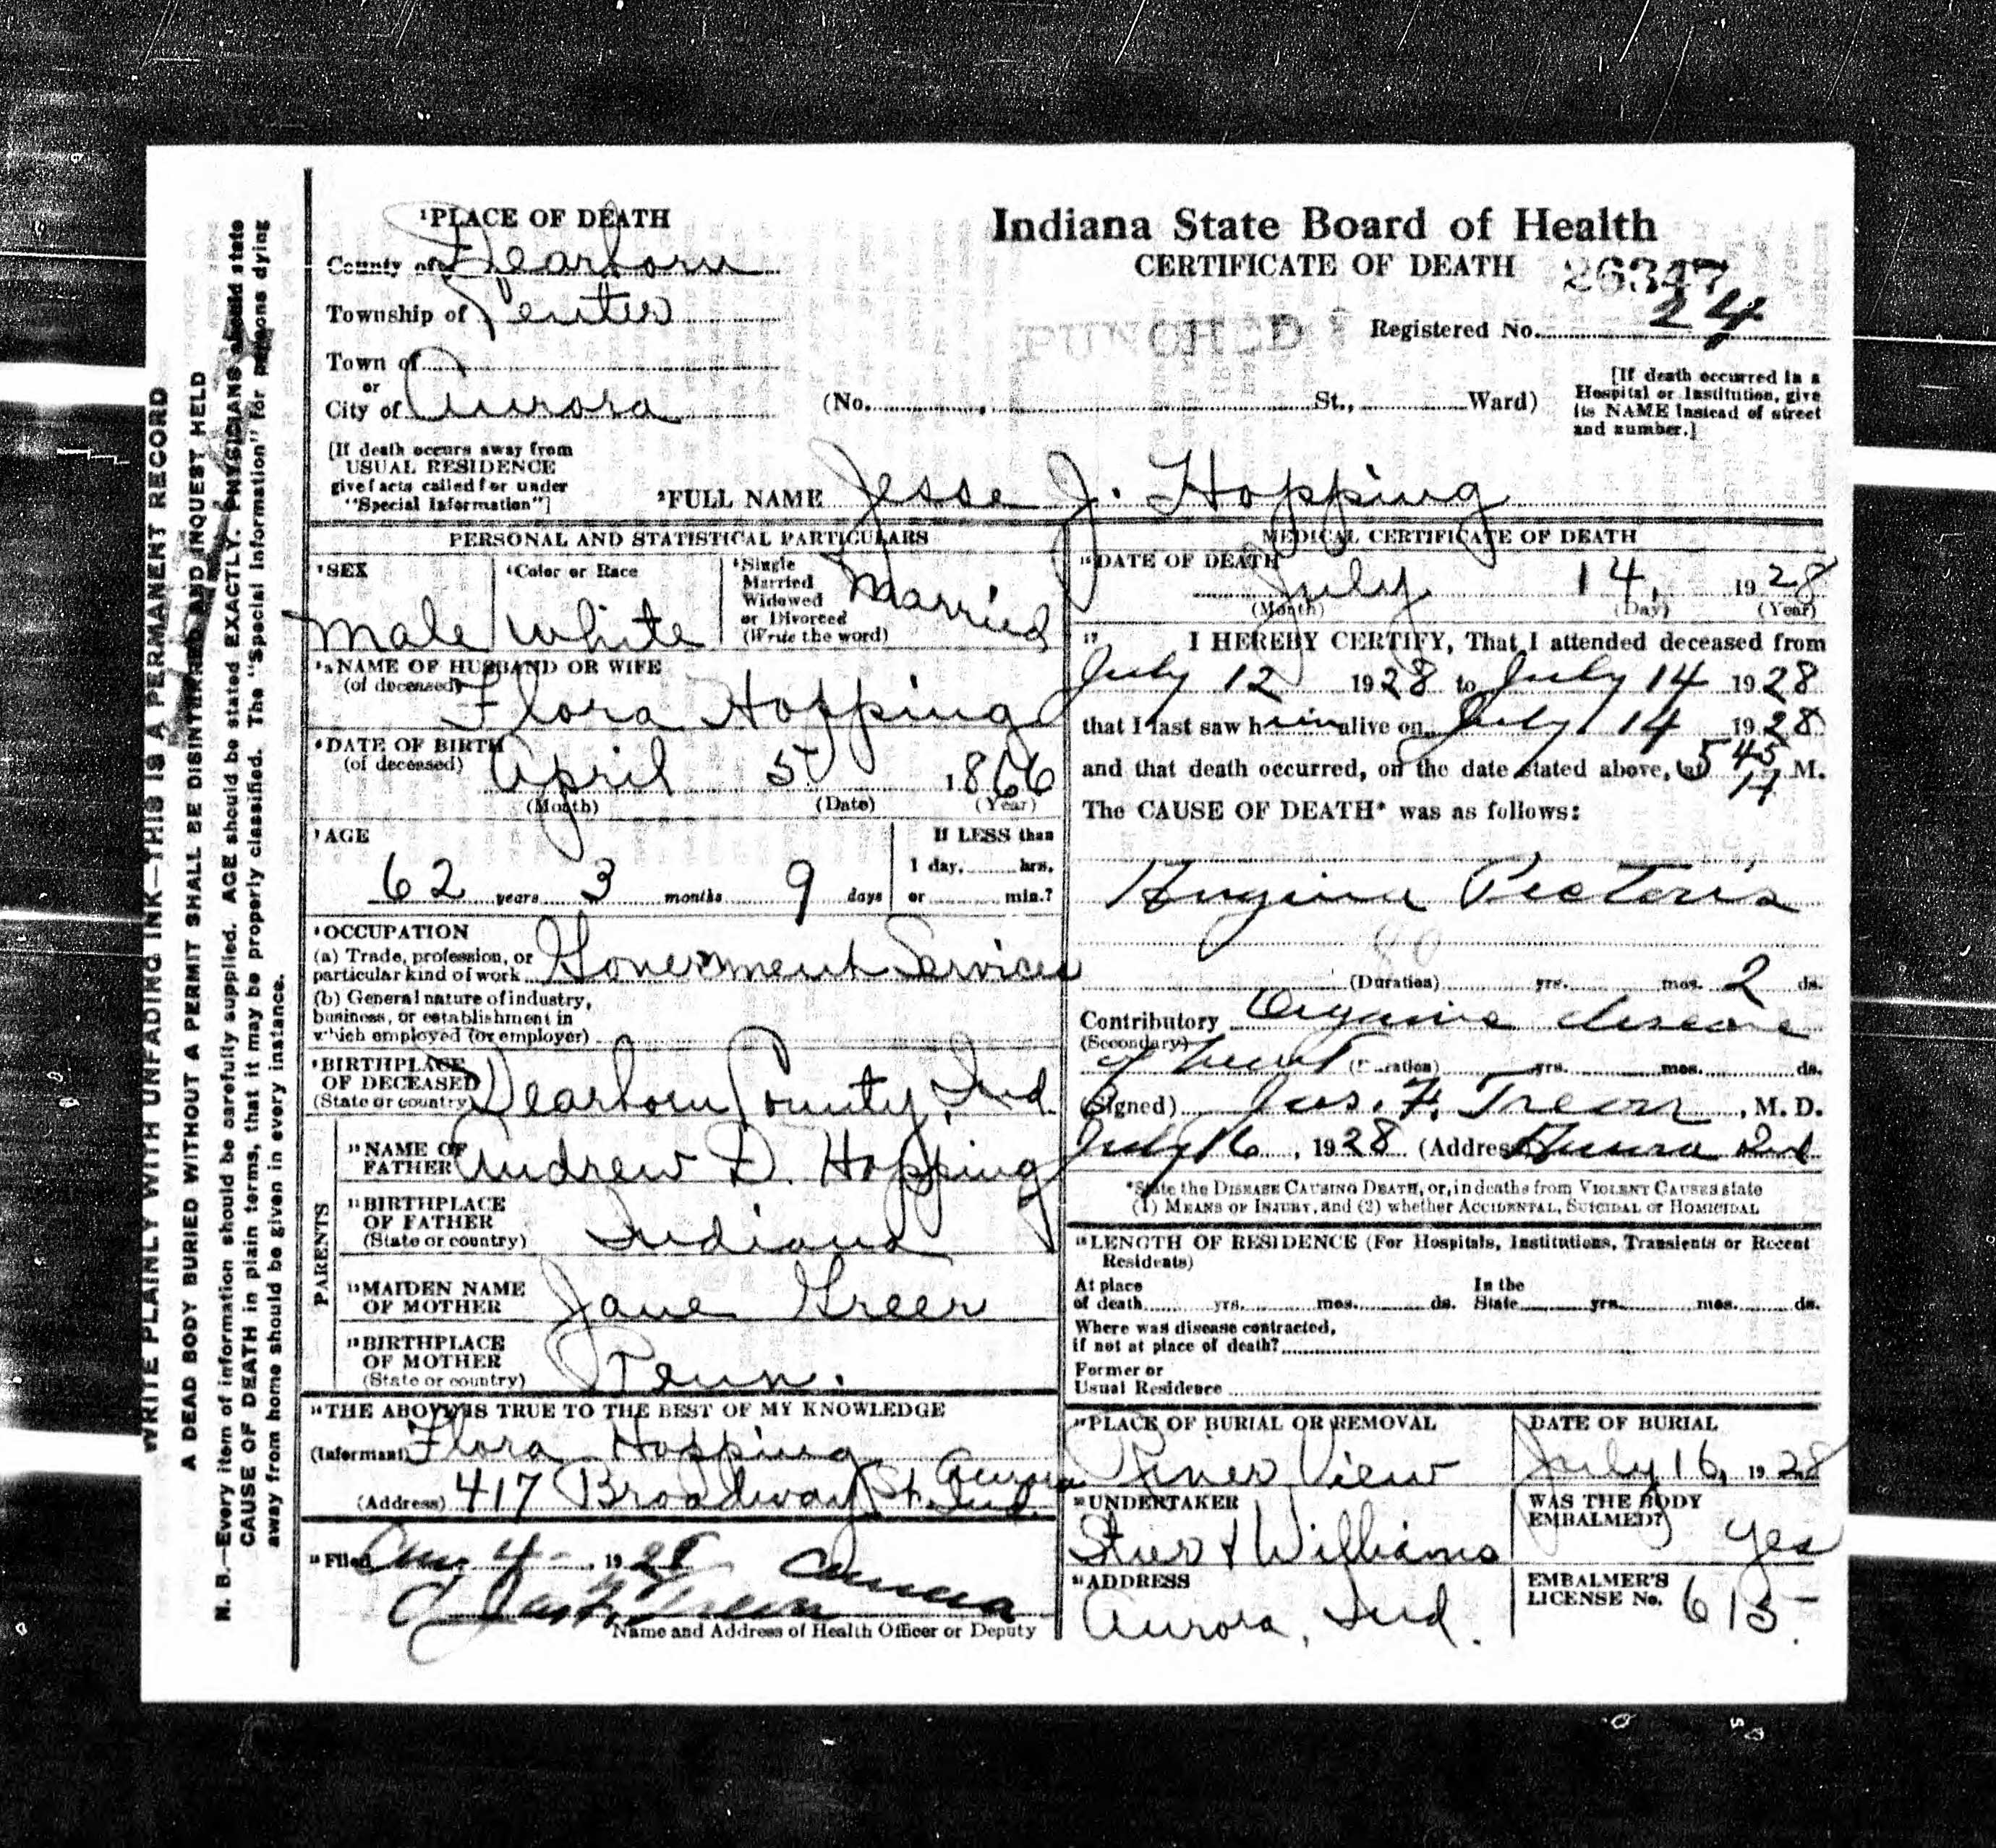 WRITE PLAINLY WITH UNFADING INK—THIS IS A PERMANENT RECORD
A DEAD BODY BURIED WITHOUT A PERMIT SHALL BE DISINTERRED AND INQUEST HELD
N. B.—Every item of information should be carefully supplied. AGE should be stated EXACTLY. PHYSICIANS should state
CAUSE OF DEATH in plain terms, that it may be properly classified. The "Special Information" for persons dying
away from home should be given in every instance.
Indiana State Board of Health
CERTIFICATE OF DEATH 26347
PUNCHED
Registered No. 24
¹PLACE OF DEATH
County of Dearborn
Township of Center
Town of
or
City of Aurora
(No. , St., Ward)
[If death occurred in a
Hospital or Institution, give
its NAME instead of street
and number.]
[If death occurs away from
USUAL RESIDENCE
give facts called for under
"Special Information"]
²FULL NAME Jesse J. Hopping
PERSONAL AND STATISTICAL PARTICULARS
³SEX
male
⁴Color or Race
white
⁵Single
Married
Widowed
or Divorced
(Write the word)
Married
⁵ᵃNAME OF HUSBAND OR WIFE
(of deceased)
Flora Hopping
⁶DATE OF BIRTH
(of deceased)
April 5 1866
(Month) (Date) (Year)
⁷AGE
62 years 3 months 9 days
If LESS than
1 day, hrs.
or min.?
⁸OCCUPATION
(a) Trade, profession, or
particular kind of work Government Services
(b) General nature of industry,
business, or establishment in
which employed (or employer)
⁹BIRTHPLACE
OF DECEASED
(State or country)
Dearborn County, Ind.
PARENTS
¹⁰NAME OF
FATHER Andrew D. Hopping
¹¹BIRTHPLACE
OF FATHER
(State or country)
Indiana
¹²MAIDEN NAME
OF MOTHER
Jane Greer
¹³BIRTHPLACE
OF MOTHER
(State or country)
Tenn.
¹⁴THE ABOVE IS TRUE TO THE BEST OF MY KNOWLEDGE
(Informant) Flora Hopping
(Address) 417 Broadway St. Aurora Ind.
¹⁵Filed Aug. 4 - , 1928 Aurora
Jas. F. Treon
Name and Address of Health Officer or Deputy
MEDICAL CERTIFICATE OF DEATH
¹⁶DATE OF DEATH
July 14, 1928
(Month) (Day) (Year)
¹⁷ I HEREBY CERTIFY, That I attended deceased from
July 12 1928 to July 14 1928
that I last saw him alive on July 14 1928
and that death occurred, on the date stated above, at 5 45 M.
The CAUSE OF DEATH* was as follows:
Angina Pectoris
90
(Duration) yrs. mos. 2 ds.
Contributory Organic disease
(Secondary)
of heart (Duration) yrs. mos. ds.
(Signed) Jas. F. Treon, M. D.
July 16, 1928 (Address) Aurora Ind
*State the DISEASE CAUSING DEATH, or, in deaths from VIOLENT CAUSES state
(1) MEANS OF INJURY, and (2) whether ACCIDENTAL, SUICIDAL or HOMICIDAL
¹⁸LENGTH OF RESIDENCE (For Hospitals, Institutions, Transients or Recent
Residents)
At place
of death yrs. mos. ds.
In the
State yrs. mos. ds.
Where was disease contracted,
if not at place of death?
Former or
Usual Residence
¹⁹PLACE OF BURIAL OR REMOVAL
River View
DATE OF BURIAL
July 16, 1928
²⁰UNDERTAKER
Stier & Williams
WAS THE BODY
EMBALMED? yes
²¹ADDRESS
Aurora, Ind.
EMBALMER'S
LICENSE No. 615